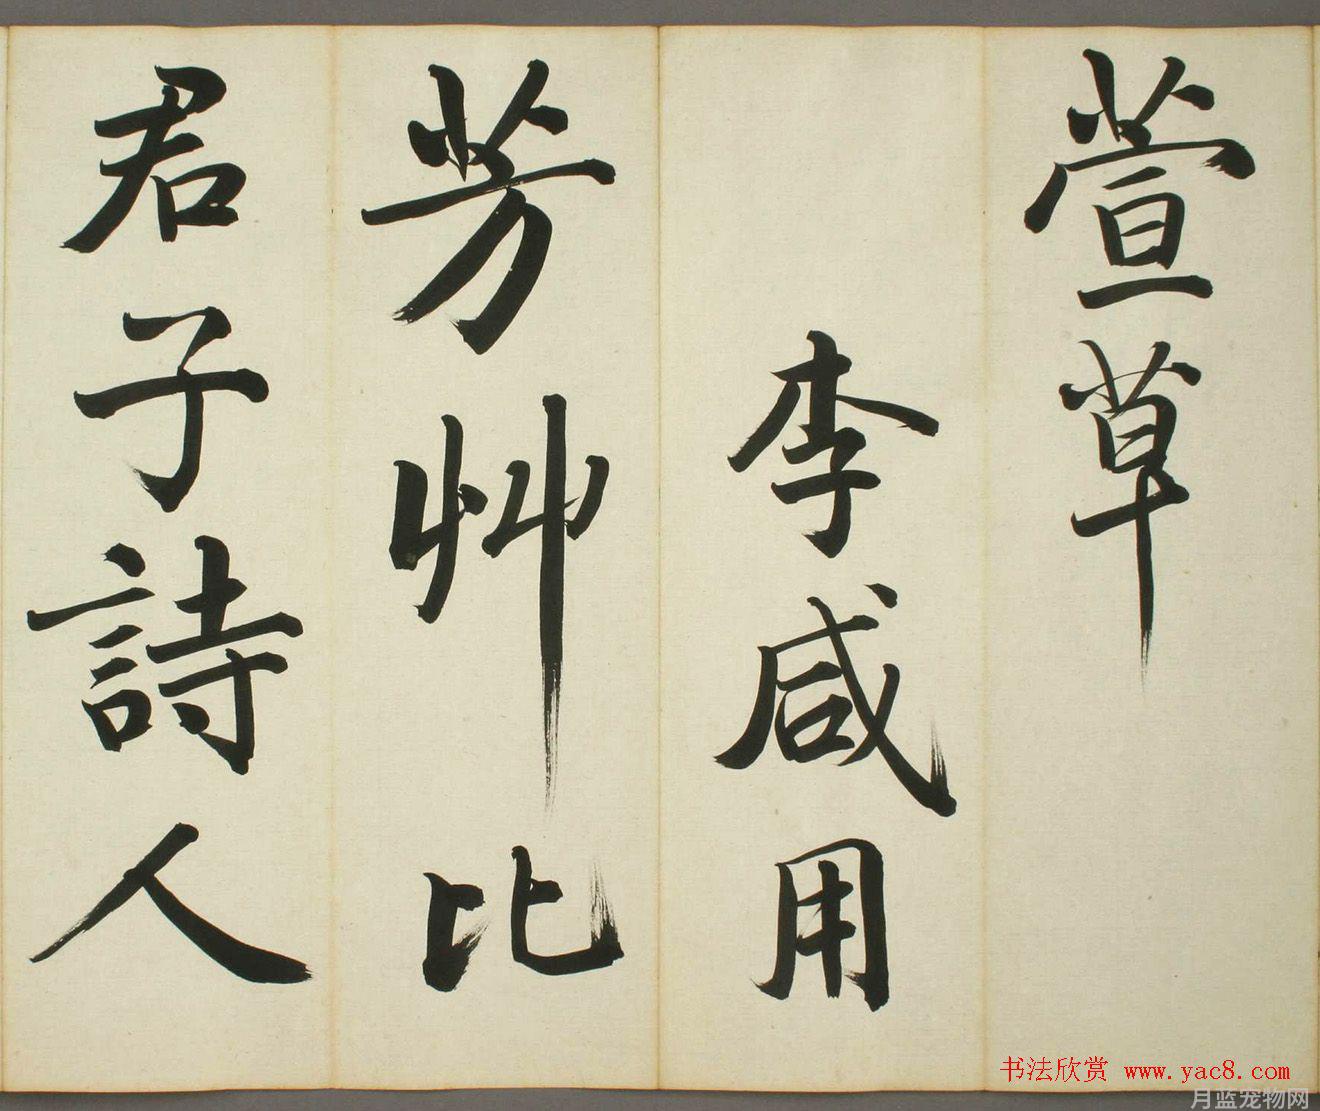 萱草
李咸用
芳艸比
君子詩人
书法欣赏 www.yac8.com
月蓝宠物网